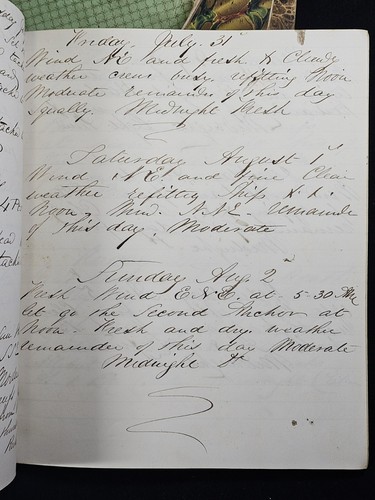 Friday July 31st
Wind NE and fresh & Cloudy
weather crew busy refitting Noon
Moderate remainder of this day
Squally. Midnight Fresh
Saturday August 1st
Wind N.E. and fine Clear
weather refitting Ship &.
Noon, Wind. N.N.E. Remainder
of this day. Moderate
Sunday Aug. 2nd
Fresh Wind E.N.E. at 5-30
let go the Second Anchor at
Noon. Fresh and dry. weather
remainder of this day Moderate
Midnight Do